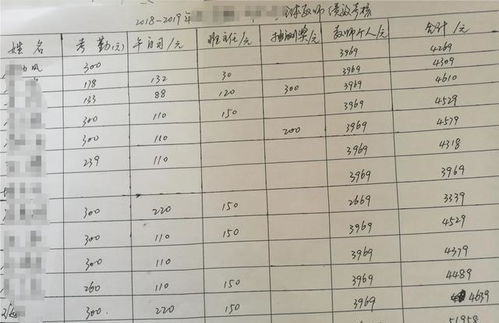 2018-2019年 体教师 绩效考核
姓名 考勤(元) 年自习/元 班主任/元 抽测奖/元 教师个人/元 合计/元
300 3969 4269
178 132 30 3969 4309
133 88 120 300 3969 4610
300 110 150 3969 4529
300 110 200 3969 4579
239 110 3969 4318
3969 3969
300 220 150 2669 3339
300 110 150 3969 4529
300 110 3969 4379
260 110 150 3969 4489
300 220 150 3969 4639
51958